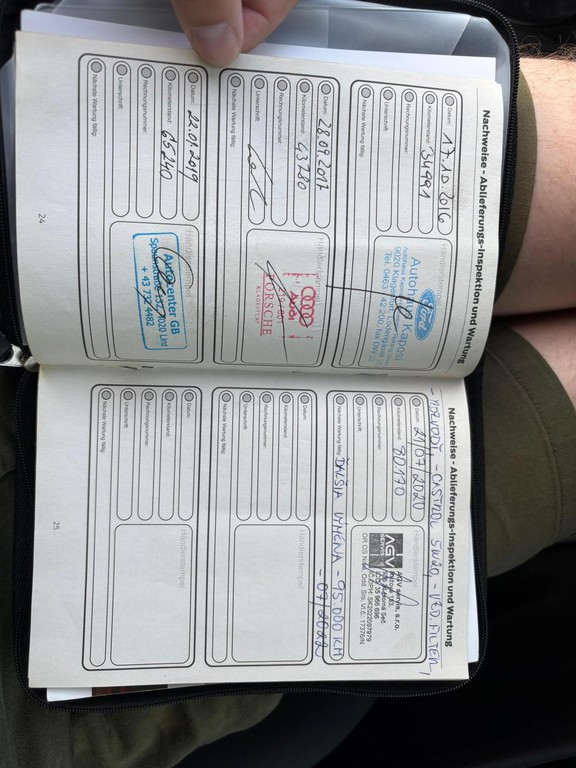 Nachweise - Ablieferungs-Inspektion und Wartung
Datum: 17.10.2016
Kilometerstand: 34991
Rechnungsnummer:
Unterschrift:
Nächste Wartung fällig:
Händlerstempel
Ford
Autohaus Kaposi
9020 Klagenfurt,
Tel. 0463
Datum: 28.09.2017
Kilometerstand: 43780
Rechnungsnummer:
Unterschrift:
Nächste Wartung fällig:
Händlerstempel
Audi
PORSCHE
KLAGENFURT
Datum: 22.01.2019
Kilometerstand: 65240
Rechnungsnummer:
Unterschrift:
Nächste Wartung fällig:
Händlerstempel
Autocenter GB
4020 Linz
24
Nachweise - Ablieferungs-Inspektion und Wartung
- ROZVODY, - CASTROL 5W20, - VZD. FILTER,
Datum: 21/07/2020
Kilometerstand: 80.170
Rechnungsnummer:
Unterschrift:
Nächste Wartung fällig:
Händlerstempel
AGV
AGV servis, s.r.o.
IČ DPH: SK2022097979
ĎALŠIA VÝMENA - 95.000 KM
- 07/2022
Datum:
Kilometerstand:
Rechnungsnummer:
Unterschrift:
Nächste Wartung fällig:
Händlerstempel
Datum:
Kilometerstand:
Rechnungsnummer:
Unterschrift:
Nächste Wartung fällig:
Händlerstempel
25